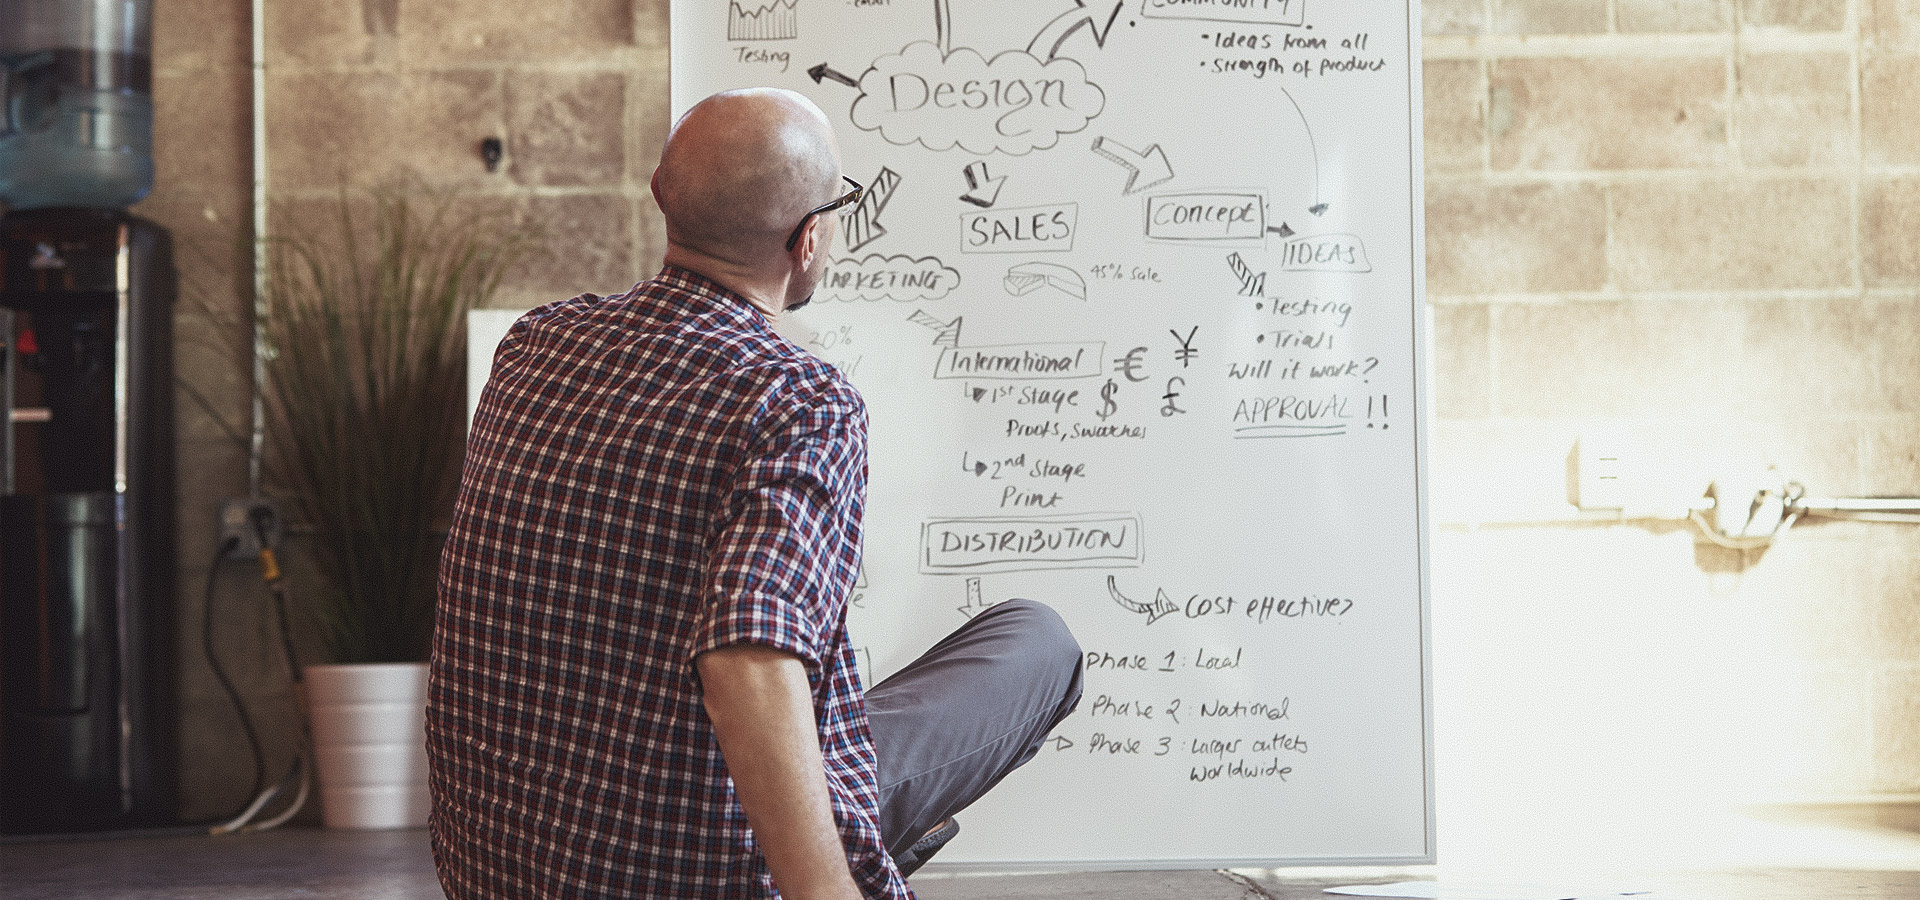 COMMUNITY
• Ideas from all
• Strength of product
Testing
Design
SALES
Concept
IDEAS
MARKETING
45% Sale
• Testing
• Trials
Will it work?
APPROVAL !!
20%
International € ¥
1st Stage $ £
Proofs, Swatches
2nd Stage
Print
DISTRIBUTION
Cost effective?
Phase 1: Local
Phase 2: National
Phase 3: Larger outlets
worldwide